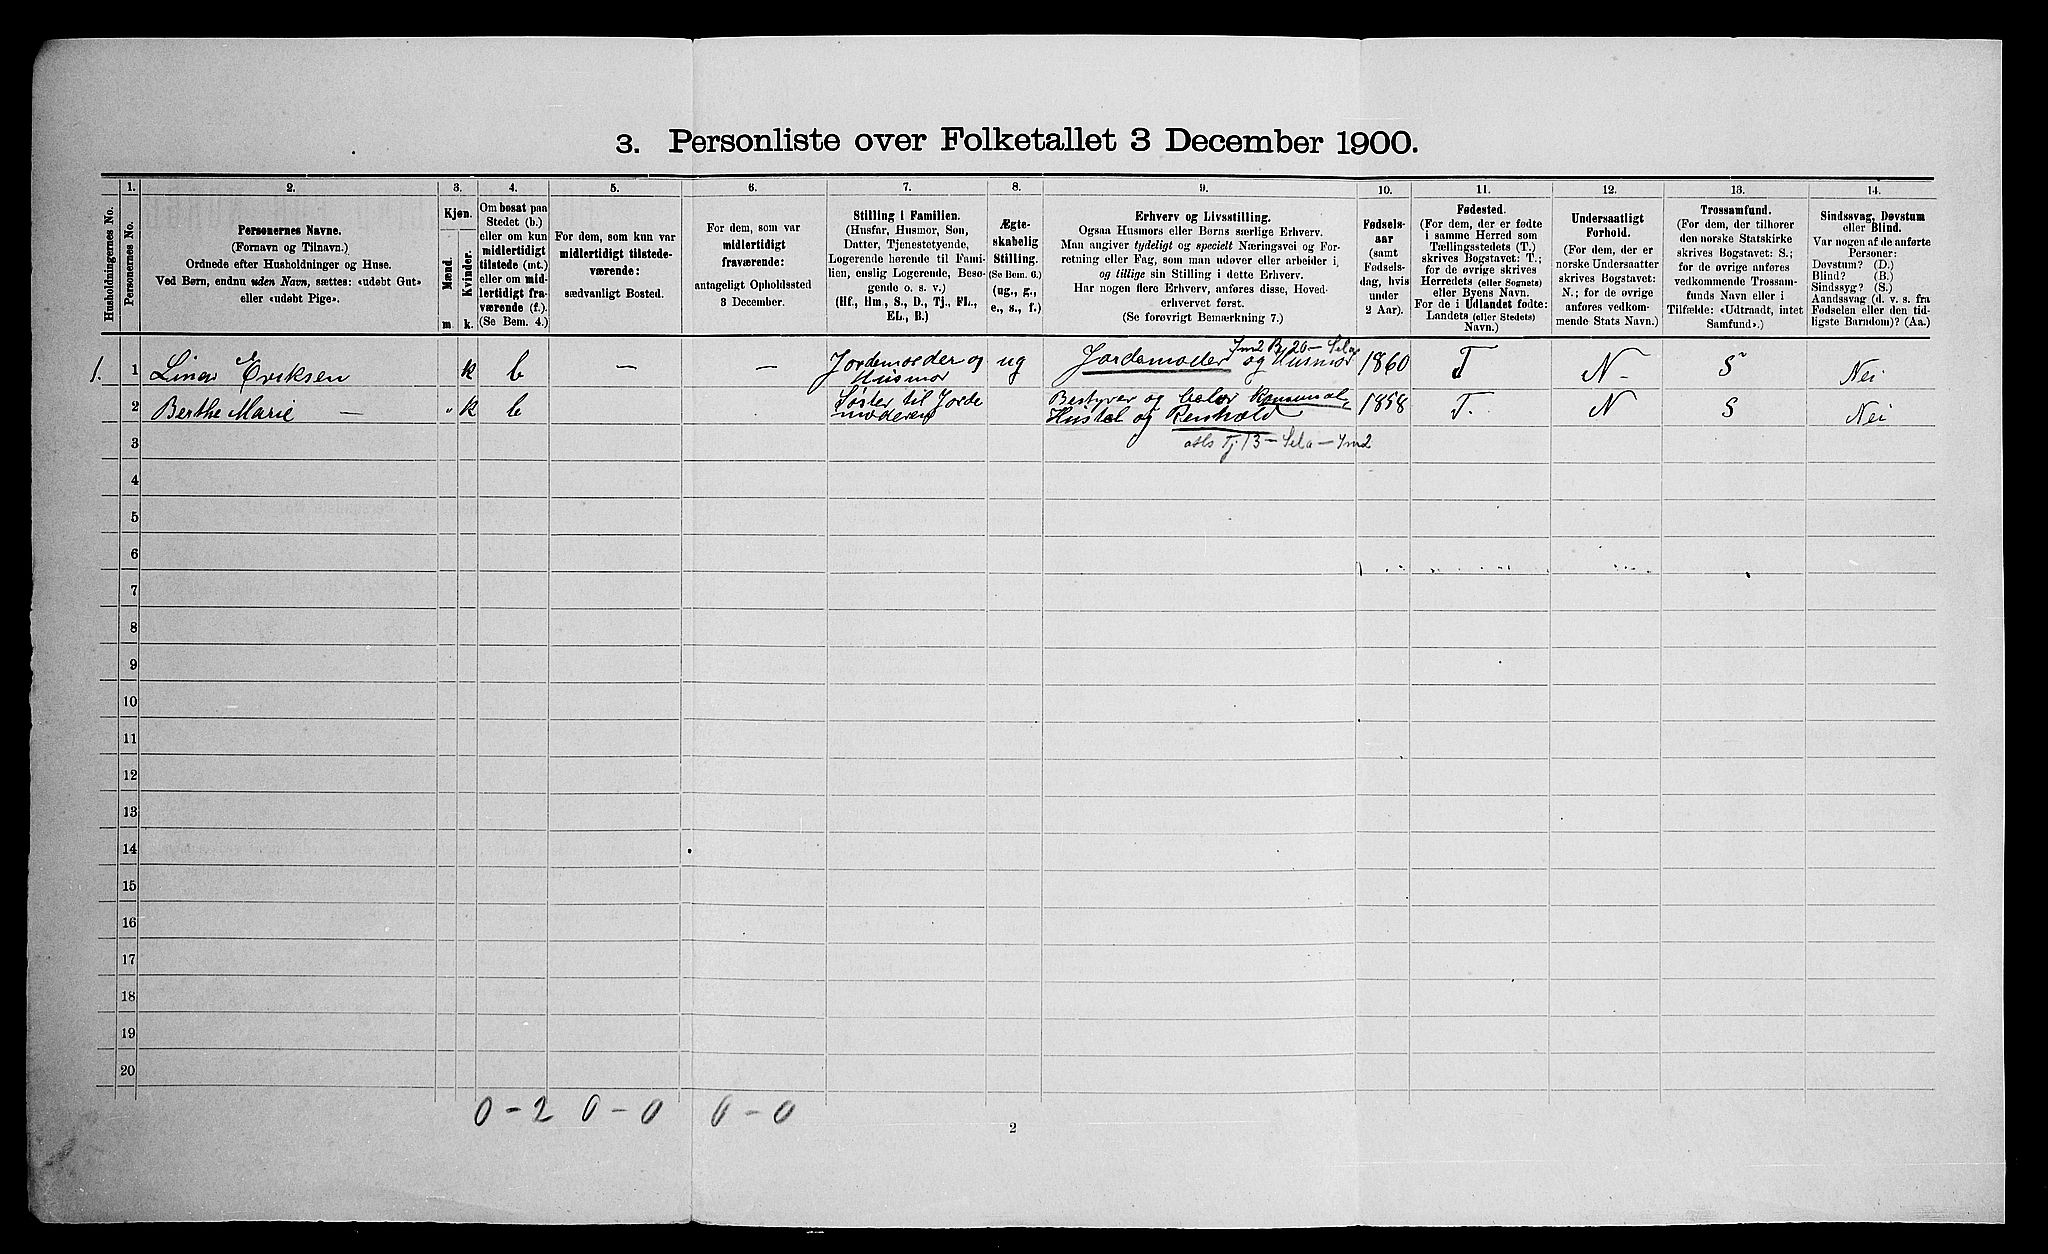 3. Personliste over Folketallet 3 December 1900.
1. 2. 3. 4. 5. 6. 7. 8. 9. 10. 11. 12. 13. 14.
Husholdningernes No.
Personernes No.
Personernes Navne.
(Fornavn og Tilnavn.)
Ordnede efter Husholdninger og Huse.
Ved Børn, endnu uden Navn, sættes: «udøbt Gut»
eller «udøbt Pige».
Kjøn.
Mænd.
Kvinder.
m. k.
Om bosat paa
Stedet (b.)
eller om kun
midlertidigt
tilstede (mt.)
eller om mid-
lertidigt fra-
værende (f.).
(Se Bem. 4.)
For dem, som kun var
midlertidigt tilstede-
værende:
sædvanligt Bosted.
For dem, som var
midlertidigt
fraværende:
antageligt Opholdssted
3 December.
Stilling i Familien.
(Husfar, Husmor, Søn,
Datter, Tjenestetyende,
Logerende hørende til Fami-
lien, enslig Logerende, Besø-
gende o. s. v.)
(Hf., Hm., S., D., Tj., FL.,
EL., B.)
Ægte-
skabelig
Stilling.
(Se Bem. 6.)
(ug., g.,
e., s., f.)
Erhverv og Livsstilling.
Ogsaa Husmors eller Børns særlige Erhverv.
Man angiver tydeligt og specielt Næringsvei og For-
retning eller Fag, som man udøver eller arbeider i,
og tillige sin Stilling i dette Erhverv.
Har nogen flere Erhverv, anføres disse, Hoved-
erhvervet først.
(Se forøvrigt Bemærkning 7.)
Fødsels-
aar
(samt
Fødsels-
dag, hvis
under
2 Aar).
Fødested.
(For dem, der er fødte
i samme Herred som
Tællingsstedets (T.)
skrives Bogstavet: T.;
for de øvrige skrives
Herredets (eller Sognets)
eller Byens Navn.
For de i Udlandet fødte:
Landets (eller Stedets)
Navn.)
Undersaatligt
Forhold.
(For dem, der er
norske Undersaatter
skrives Bogstavet:
N.; for de øvrige
anføres vedkom-
mende Stats Navn.)
Trossamfund.
(For dem, der tilhører
den norske Statskirke
skrives Bogstavet: S.;
for de øvrige anføres
vedkommende Trossam-
funds Navn eller i
Tilfælde: «Udtraadt, intet
Samfund».)
Sindssvag, Døvstum
eller Blind.
Var nogen af de anførte
Personer:
Døvstum? (D.)
Blind? (B.)
Sindssyg? (S.)
Aandssvag (d. v. s. fra
Fødselen eller den tid-
ligste Barndom)? (Aa.)
1. 1 Lina Eriksen k b — — Jordemoder og Husmor ug Jordemoder og Husmor 1860 T N - S Nei
2 Berthe Marie — " k b Søster til Jordemoderen Bestyrer og Hustel og 1858 T. N S Nei
3
4
5
6
7
8
9
10
11
12
13
14
15
16
17
18
19
20
0 - 2 0 - 0 0 - 0
2